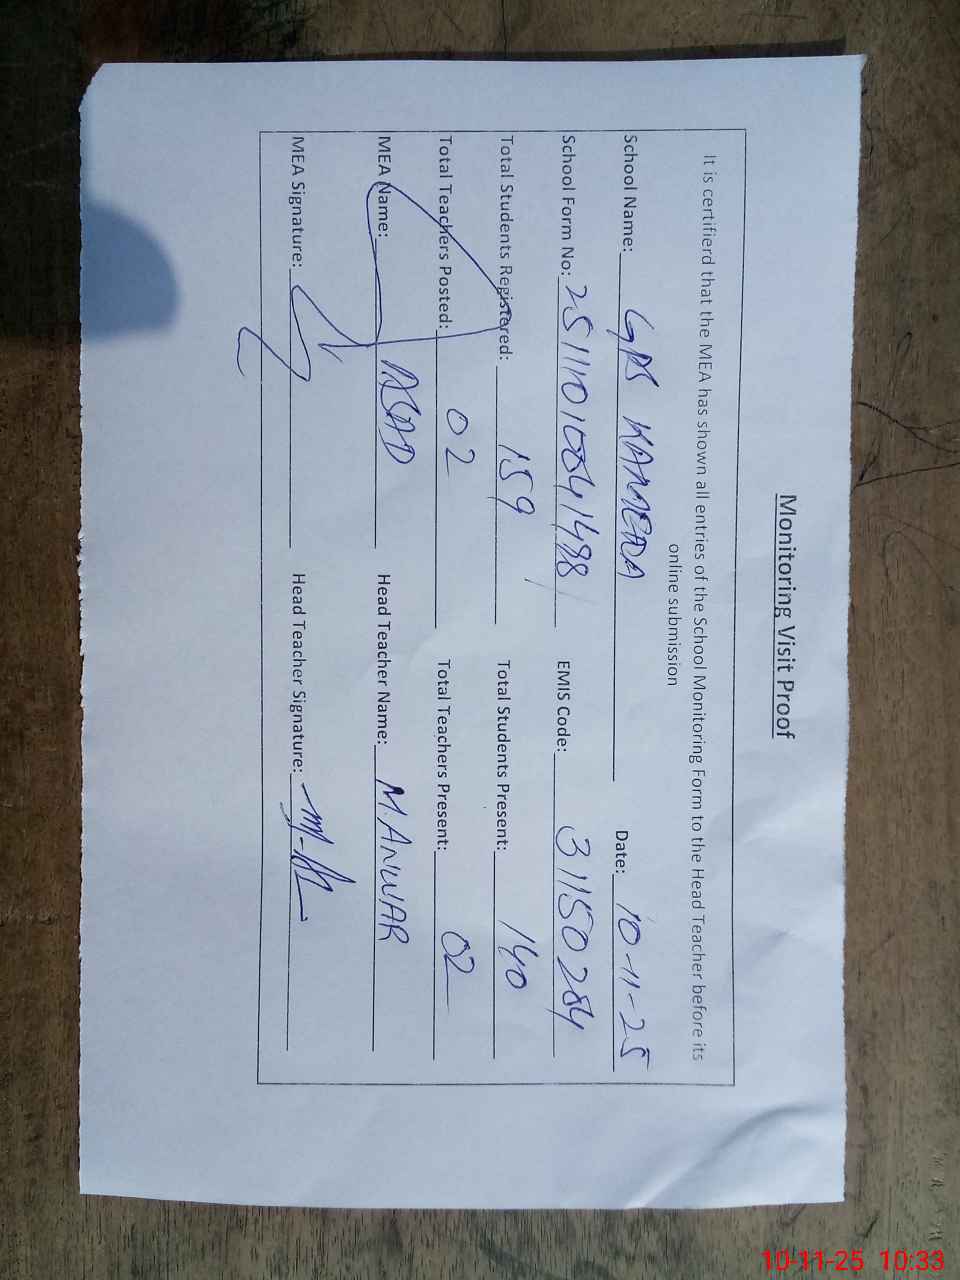 Monitoring Visit Proof
It is certifierd that the MEA has shown all entries of the School Monitoring Form to the Head Teacher before its
online submission
School Name: GPS Date: 10-11-25
School Form No: EMIS Code: 31150284
Total Students Registered: 159 Total Students Present: 140
Total Teachers Posted: 02 Total Teachers Present: 02
MEA Name: ASAD Head Teacher Name: M. ANWAR
MEA Signature: Head Teacher Signature:
10-11-25 10:33